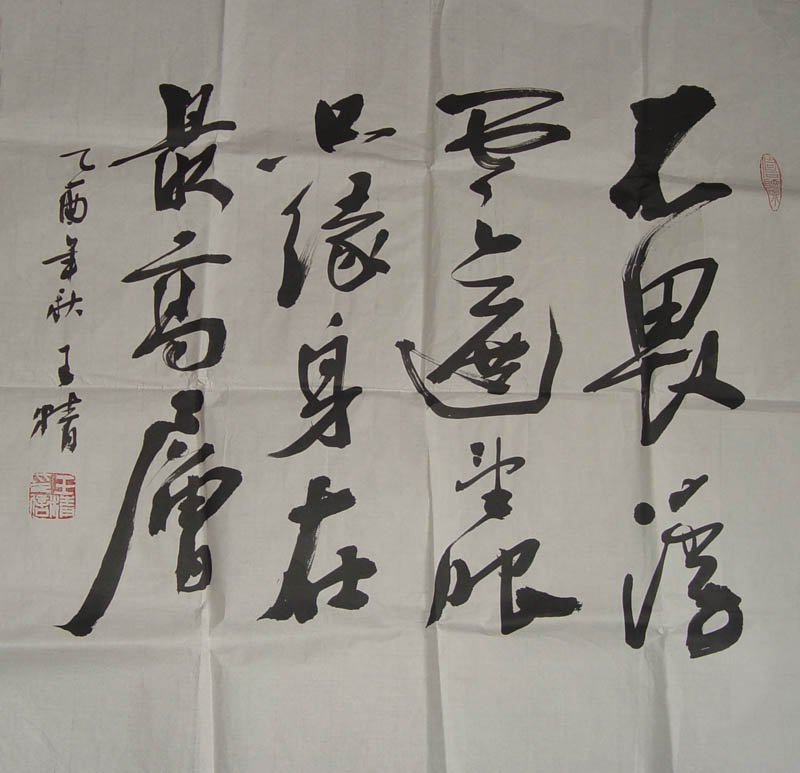 不畏浮
雲遮望眼
只緣身在
最高層
乙酉年秋 王精